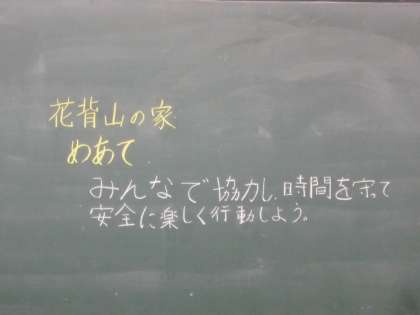 花背山の家
めあて
みんなで協力し、時間を守って
安全に楽しく行動しよう。